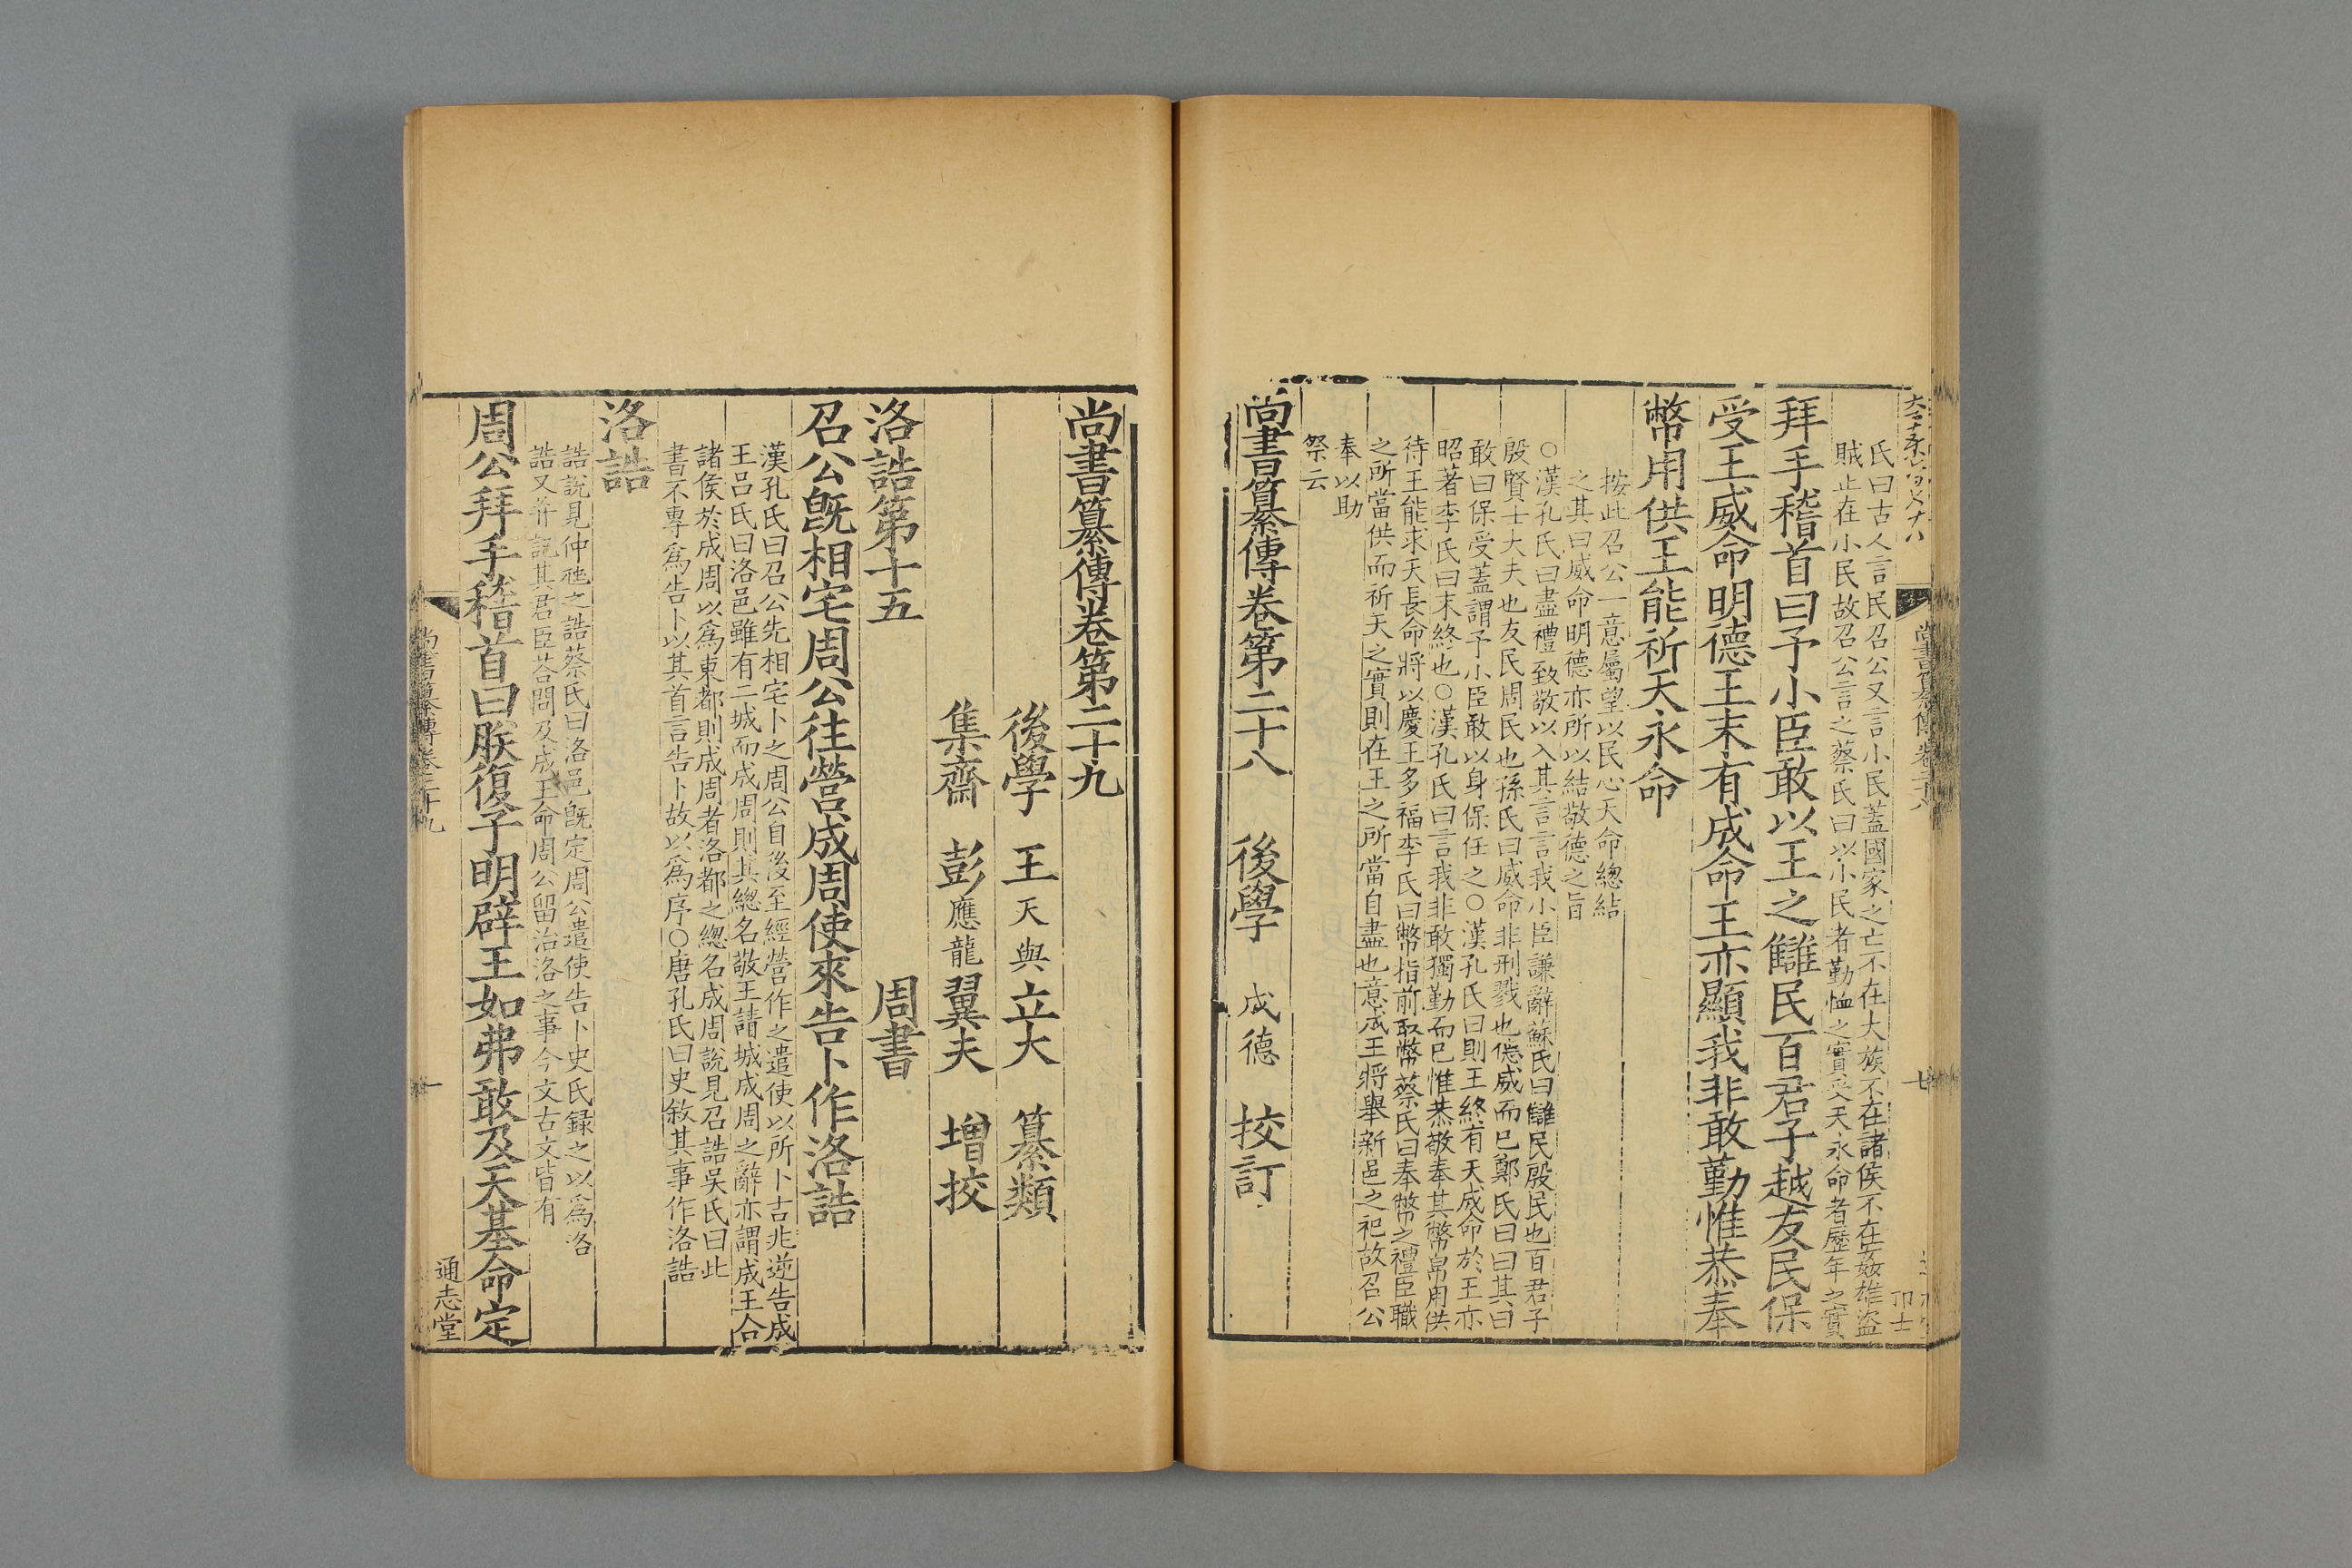 氏曰古人言民召公又言小民蓋國家之亡不在大族不在諸侯不在姦雄盜
賊止在小民故召公言之蔡氏曰以小民者勤恤之實受天永命者歷年之實
拜手稽首曰予小臣敢以王之讎民百君子越友民保
受王威命明德王末有成命王亦顯我非敢勤惟恭奉
幣用供王能祈天永命
按此召公一意屬望以民心天命總結
之其曰威命明德亦所以結敬德之旨
○漢孔氏曰盡禮致敬以入其言言我小臣謙辭蘇氏曰讎民殷民也百君子
殷賢士大夫也友民周民也孫氏曰威命非刑戮也德威而已鄭氏曰曰其曰
敢曰保受蓋謂予小臣敢以身保任之○漢孔氏曰則王終有天成命於王亦
昭著李氏曰末終也○漢孔氏曰言我非敢獨勤而已惟恭敬奉其幣帛用供
待王能求天長命將以慶王多福李氏曰幣指前取幣蔡氏曰奉幣之禮臣職
之所當供而祈天之實則在王之所當自盡也意成王將舉新邑之祀故召公
奉以助
祭云
尚書纂傳卷第二十八 後學 成德 挍訂
尚書纂傳卷第二十九
後學 王天與立大 纂類
集齋 彭應龍翼夫 增挍
洛誥第十五 周書
召公旣相宅周公往營成周使來告卜作洛誥
漢孔氏曰召公先相宅卜之周公自後至經營作之遣使以所卜吉兆逆告成
王呂氏曰洛邑雖有二城而成周則其總名敬王請城成周之辭亦謂成王合
諸侯於成周以爲東都則成周者洛都之總名成周說見召誥吳氏曰此
書不專爲告卜以其首言告卜故以爲序○唐孔氏曰史敘其事作洛誥
洛誥
誥說見仲虺之誥蔡氏曰洛邑旣定周公遣使告卜史氏録之以爲洛
誥又并記其君臣荅問及成王命周公留治洛之事今文古文皆有
周公拜手稽首曰朕復子明辟王如弗敢及天基命定
尚書纂傳卷二十九
一
通志堂